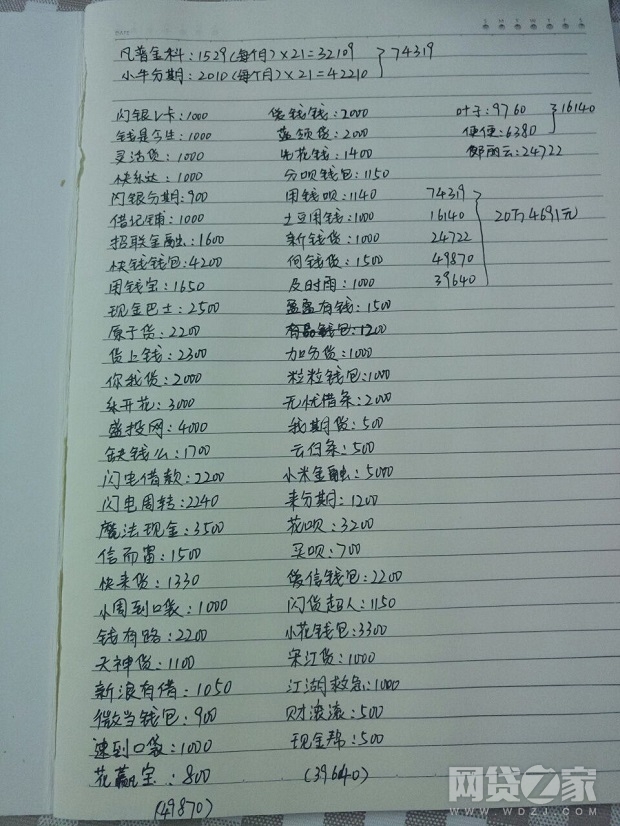 凡普金科：1529(每个月)×21=32109
小牛分期：2010(每个月)×21=42210
74319
闪银V卡：1000
钱是今生：1000
灵活贷：1000
快乐达：1000
闪银分期：900
借记铺：1000
招联金融：1600
快钱钱包：4200
用钱宝：1650
现金巴士：2500
原子贷：2200
贷上钱：2300
你我贷：2000
乐开花：3000
盛投网：4000
缺钱么：1700
闪电借款：2200
闪电周转：2240
魔法现金：3500
信而富：1500
快来贷：1330
小周到口袋：1000
钱有路：2200
天神贷：1100
新浪有借：1050
微当钱包：900
速到口袋：1000
花赢宝：800
(49870)
贷钱钱：2000
蓝领贷：2000
先花钱：1400
分呗钱包：1150
用钱呗：1140
土豆用钱：1000
新钱贷：1000
何钱贷：1500
及时雨：1000
盈盈有钱：1500
有品钱包：1200
加分贷：1000
粒粒钱包：1000
无忧借条：2000
我期贷：500
云白条：500
小米金融：5000
来分期：1200
花呗：3200
买呗：700
爱信钱包：2200
闪贷超人：1150
小花钱包：3300
宋江贷：1000
江湖救急：1000
财滚滚：500
现金帮：500
(39640)
叶子：9760
便便：6380
16140
邹丽云：24722
74319
16140
24722
49870
39640
20万4691元
网贷之家
WWW.WDZJ.COM